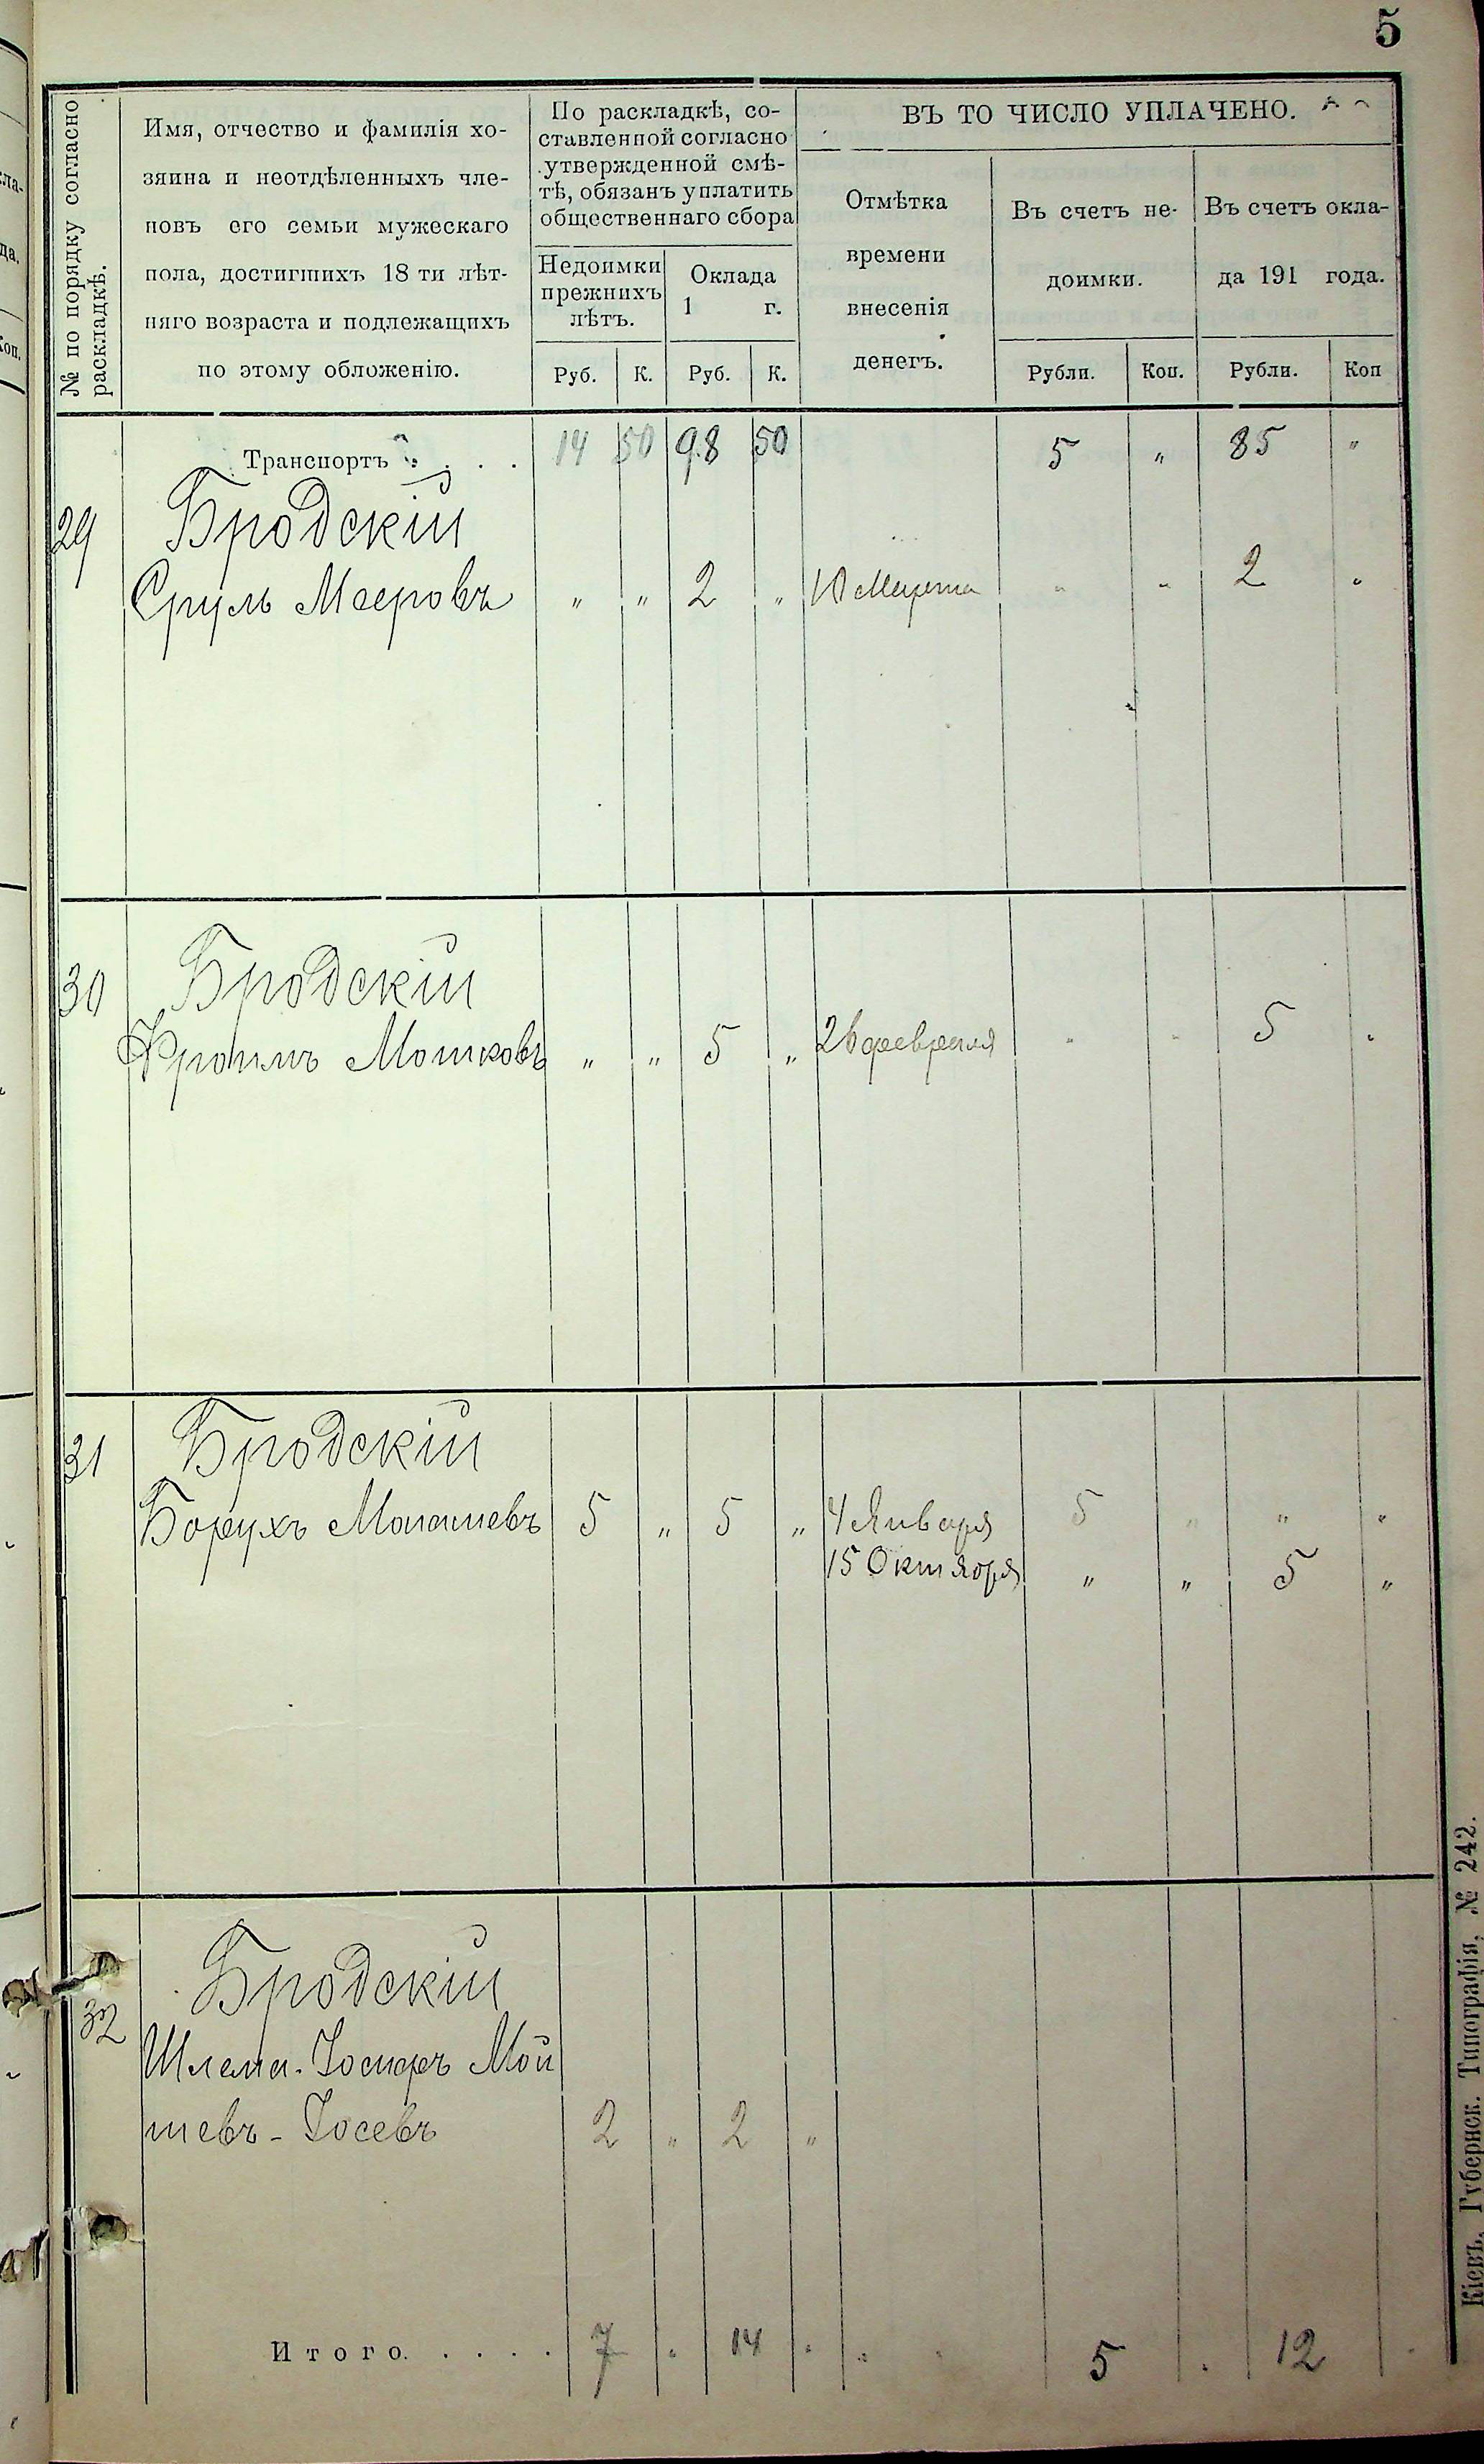 5
№ по порядку согласно
раскладкѣ.
Имя, отчество и фамилія хо-
зяина и неотдѣленныхъ чле-
новъ его семьи мужескаго
пола, достигшихъ 18 ти лѣт-
няго возраста и подлежащихъ
по этому обложенію.
По раскладкѣ, со-
ставленной согласно
утвержденной смѣ-
тѣ, обязанъ уплатить
общественнаго сбора
Недоимки
прежнихъ
лѣтъ.
Оклада
1 г.
Руб. К. Руб. К.
ВЪ ТО ЧИСЛО УПЛАЧЕНО.
Отмѣтка
времени
внесенія
денегъ.
Въ счетъ не-
доимки.
Въ счетъ окла-
да 191 года.
Рубли. Коп. Рубли. Коп
Транспортъ . . . 14 50 98 50 5 " 85 "
29 Бродскій
Сруль Мееровъ " " 2 " 10 Марта " " 2 "
30 Бродскій
Фроимъ Мошковъ " " 5 " 26 февраля " " 5 "
31 Бродскій
Борухъ Монашевъ 5 " 5 " 4 Января 5 " " "
15 Октября " " 5 "
32 Бродскій
Шлема-Іосифъ Мой
шевъ-Іосевъ 2 " 2 "
Итого. . . . . 7 " 14 " 5 . 12
Кіевъ. Губернск. Типографія, № 242.